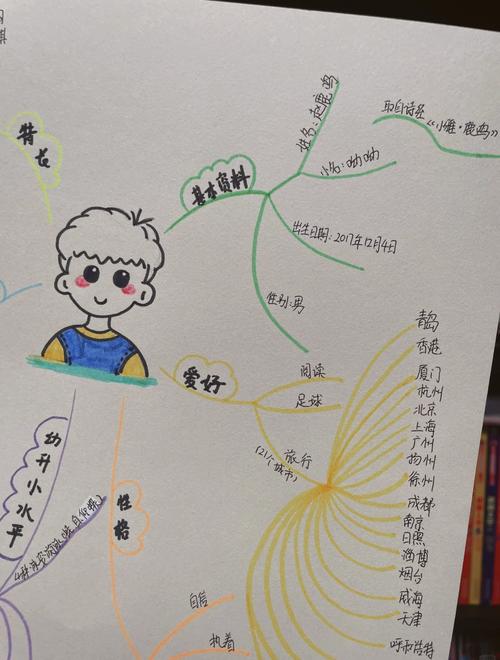 特长
基本资料
姓名：赵鹿鸣
取自诗经
《小雅·鹿鸣》
小名：呦呦
出生日期：2017年12月4日
性别：男
爱好
阅读
足球
旅行
(21个城市)
青岛
香港
厦门
杭州
北京
上海
广州
扬州
徐州
成都
南京
日照
淄博
烟台
威海
天津
呼和浩特
幼升小水平
性格
自信
执着